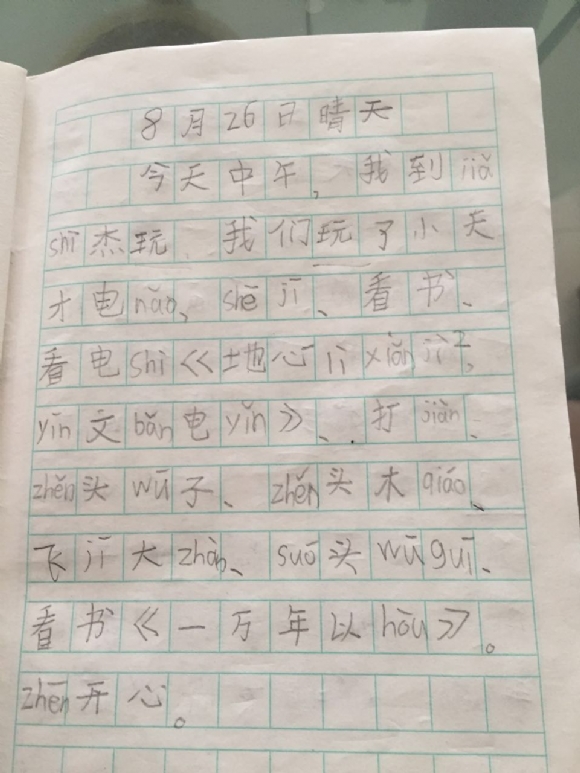 8月26日晴天
今天中午，我到jiǎ
shī杰玩 我们玩了小天
才电nǎo、shè jī、看书、
看电shì《地心lì xiǎn jì 2，
yīn文bǎn电yǐn》、打jiàn、
zhěn头wū子、zhěn头木qiáo、
飞jī大zhàn、suō头wū guī、
看书《一万年以hòu》。
zhēn开心。